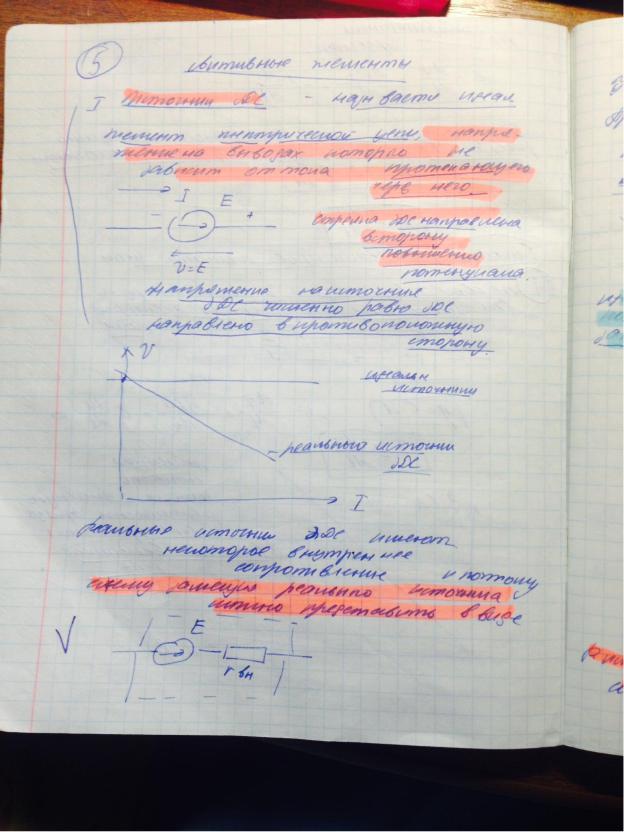 5
Активные элементы
I Источник ЭДС - называется идеал
элемент электрической цепи, напря-
жение на выводах которого не
зависит от тока протекающего
через него.
I E
- +
Стрелка ЭДС направлена
в сторону
повышения
потенциала.
V=E
Напряжение на источнике
ЭДС численно равно ЭДС
направлено в противоположную
сторону.
V
идеальн
источники
реальный источник
ЭДС
I
Реальные источник ЭДС имеют
некоторое внутреннее
сопротивление и поэтому
схему реального источника
можно представить в виде
V
E
r вн